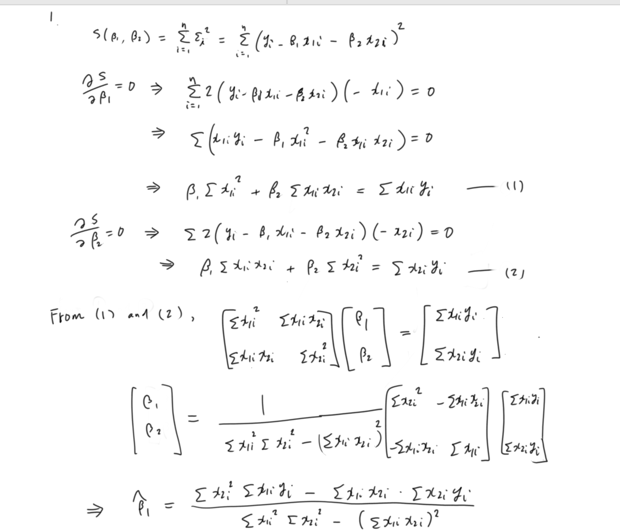 1.
S(β₁, β₂) = Σᵢ₌₁ⁿ εᵢ² = Σᵢ₌₁ⁿ (yᵢ - β₁x₁ᵢ - β₂x₂ᵢ)²
∂S/∂β₁ = 0 ⇒ Σᵢ₌₁ⁿ 2(yᵢ - β₁x₁ᵢ - β₂x₂ᵢ)(-x₁ᵢ) = 0
⇒ Σ(x₁ᵢyᵢ - β₁x₁ᵢ² - β₂x₁ᵢx₂ᵢ) = 0
⇒ β₁Σx₁ᵢ² + β₂Σx₁ᵢx₂ᵢ = Σx₁ᵢyᵢ — (1)
∂S/∂β₂ = 0 ⇒ Σ2(yᵢ - β₁x₁ᵢ - β₂x₂ᵢ)(-x₂ᵢ) = 0
⇒ β₁Σx₁ᵢx₂ᵢ + β₂Σx₂ᵢ² = Σx₂ᵢyᵢ — (2)
From (1) and (2), [Σx₁ᵢ² Σx₁ᵢx₂ᵢ; Σx₁ᵢx₂ᵢ Σx₂ᵢ²] [β₁; β₂] = [Σx₁ᵢyᵢ; Σx₂ᵢyᵢ]
[β₁; β₂] = 1/(Σx₁ᵢ²Σx₂ᵢ² - (Σx₁ᵢx₂ᵢ)²) [Σx₂ᵢ² -Σx₁ᵢx₂ᵢ; -Σx₁ᵢx₂ᵢ Σx₁ᵢ²] [Σx₁ᵢyᵢ; Σx₂ᵢyᵢ]
⇒ β̂₁ = (Σx₂ᵢ²Σx₁ᵢyᵢ - Σx₁ᵢx₂ᵢ · Σx₂ᵢyᵢ)/(Σx₁ᵢ²Σx₂ᵢ² - (Σx₁ᵢx₂ᵢ)²)